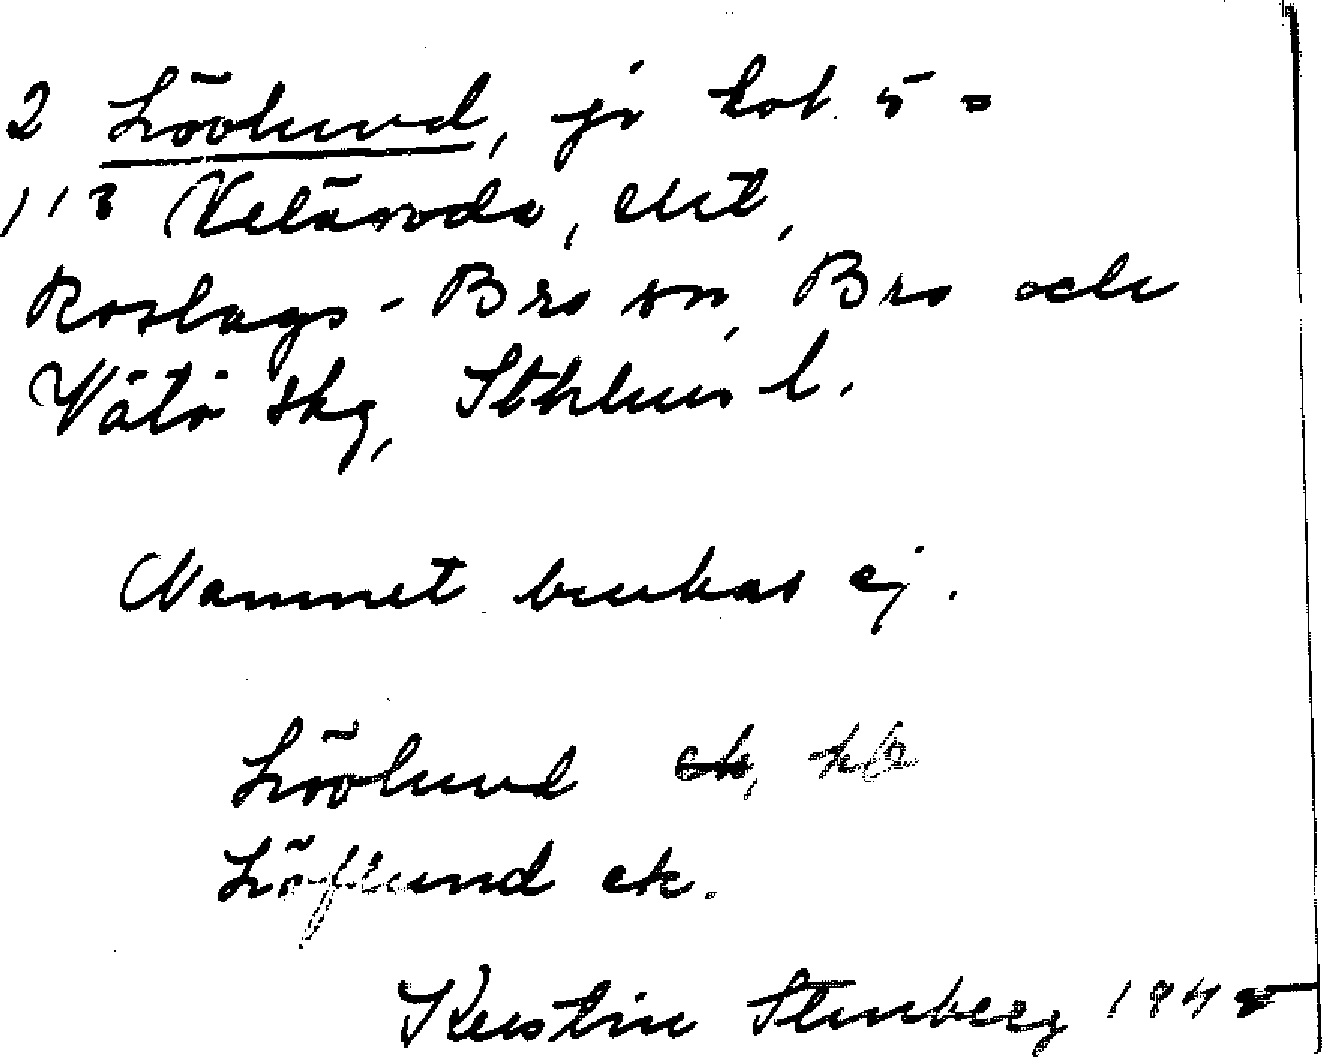 2 Lövlund, jo kat. 5 =
113 Velänoda, ekt,
Roslags-Bro sn, Bro och
Vätö skg, Sthlms l.
Namnet brukas ej.
Lövlund ek, kb
Löflund ek.
Kerstin Stenberg 1945